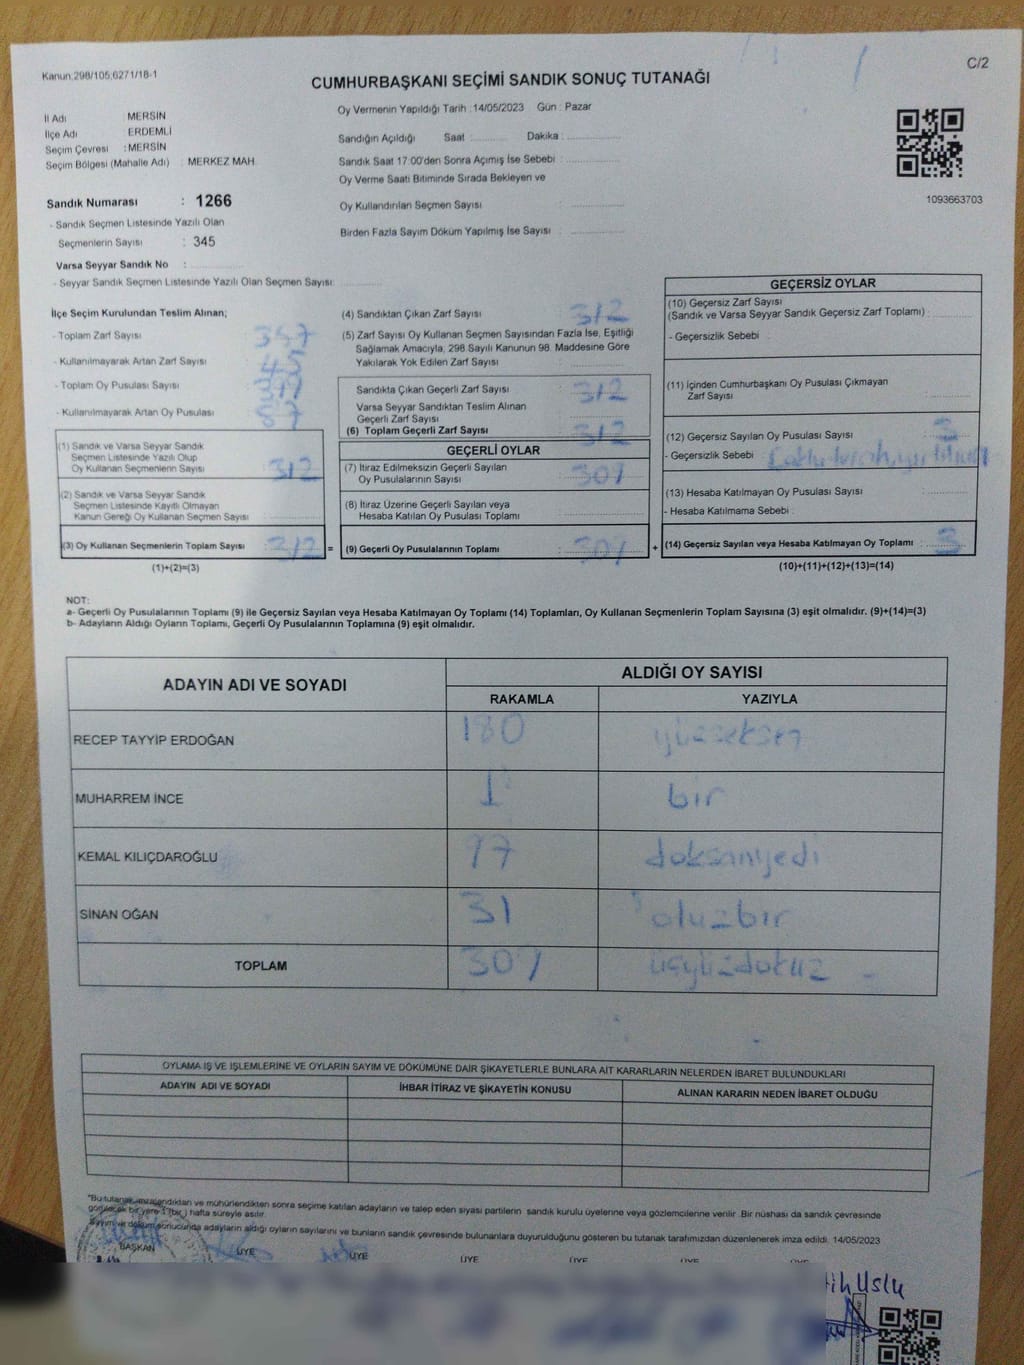 Kanun;298/105,6271/18-1
C/2
CUMHURBAŞKANI SEÇİMİ SANDIK SONUÇ TUTANAĞI
Oy Vermenin Yapıldığı Tarih : 14/05/2023 Gün : Pazar
İl Adı MERSİN
İlçe Adı ERDEMLİ
Seçim Çevresi : MERSİN
Seçim Bölgesi (Mahalle Adı) : MERKEZ MAH
Sandık Numarası : 1266
- Sandık Seçmen Listesinde Yazılı Olan
Seçmenlerin Sayısı : 345
Varsa Seyyar Sandık No :
- Seyyar Sandık Seçmen Listesinde Yazılı Olan Seçmen Sayısı:
Sandığın Açıldığı Saat : Dakika :
Sandık Saat 17:00'den Sonra Açımış İse Sebebi :
Oy Verme Saati Bitiminde Sırada Bekleyen ve
Oy Kullandırılan Seçmen Sayısı :
Birden Fazla Sayım Döküm Yapılmış İse Sayısı :
1093663703
İlçe Seçim Kurulundan Teslim Alınan;
- Toplam Zarf Sayısı :
- Kullanılmayarak Artan Zarf Sayısı :
- Toplam Oy Pusulası Sayısı :
- Kullanılmayarak Artan Oy Pusulası :
(1) Sandık ve Varsa Seyyar Sandık
Seçmen Listesinde Yazılı Olup
Oy Kullanan Seçmenlerin Sayısı : 312
(2) Sandık ve Varsa Seyyar Sandık
Seçmen Listesinde Kayıtlı Olmayan
Kanun Gereği Oy Kullanan Seçmen Sayısı :
(3) Oy Kullanan Seçmenlerin Toplam Sayısı : 312 =
(1)+(2)=(3)
(4) Sandıktan Çıkan Zarf Sayısı : 312
(5) Zarf Sayısı Oy Kullanan Seçmen Sayısından Fazla İse, Eşitliği
Sağlamak Amacıyla, 298 Sayılı Kanunun 98. Maddesine Göre
Yakılarak Yok Edilen Zarf Sayısı :
Sandıkta Çıkan Geçerli Zarf Sayısı : 312
Varsa Seyyar Sandıktan Teslim Alınan
Geçerli Zarf Sayısı :
(6) Toplam Geçerli Zarf Sayısı : 312
GEÇERLİ OYLAR
(7) İtiraz Edilmeksizin Geçerli Sayılan
Oy Pusulalarının Sayısı : 309
(8) İtiraz Üzerine Geçerli Sayılan veya
Hesaba Katılan Oy Pusulası Toplamı :
(9) Geçerli Oy Pusulalarının Toplamı : 309 +
GEÇERSİZ OYLAR
(10) Geçersiz Zarf Sayısı
(Sandık ve Varsa Seyyar Sandık Geçersiz Zarf Toplamı) :
- Geçersizlik Sebebi :
(11) İçinden Cumhurbaşkanı Oy Pusulası Çıkmayan
Zarf Sayısı :
(12) Geçersiz Sayılan Oy Pusulası Sayısı : 3
- Geçersizlik Sebebi :
(13) Hesaba Katılmayan Oy Pusulası Sayısı :
- Hesaba Katılmama Sebebi :
(14) Geçersiz Sayılan veya Hesaba Katılmayan Oy Toplamı : 3
(10)+(11)+(12)+(13)=(14)
NOT:
a- Geçerli Oy Pusulalarının Toplamı (9) ile Geçersiz Sayılan veya Hesaba Katılmayan Oy Toplamı (14) Toplamları, Oy Kullanan Seçmenlerin Toplam Sayısına (3) eşit olmalıdır. (9)+(14)=(3)
b- Adayların Aldığı Oyların Toplamı, Geçerli Oy Pusulalarının Toplamına (9) eşit olmalıdır.
ADAYIN ADI VE SOYADI
ALDIĞI OY SAYISI
RAKAMLA YAZIYLA
RECEP TAYYİP ERDOĞAN 180 yüzseksen
MUHARREM İNCE 1 bir
KEMAL KILIÇDAROĞLU 97 doksanyedi
SİNAN OĞAN 31 otuzbir
TOPLAM 309 üçyüzdokuz
OYLAMA İŞ VE İŞLEMLERİNE VE OYLARIN SAYIM VE DÖKÜMÜNE DAİR ŞİKAYETLERLE BUNLARA AİT KARARLARIN NELERDEN İBARET BULUNDUKLARI
ADAYIN ADI VE SOYADI İHBAR İTİRAZ VE ŞİKAYETİN KONUSU ALINAN KARARIN NEDEN İBARET OLDUĞU
*Bu tutanak imzalandıktan ve mühürlendikten sonra seçime katılan adayların ve talep eden siyasi partilerin sandık kurulu üyelerine veya gözlemcilerine verilir .Bir nüshası da sandık çevresinde
görülecek bir yere 1 (bir ) hafta süreyle asılır.
Sayım ve döküm sonucunda adayların aldığı oyların sayılarını ve bunların sandık çevresinde bulunanlara duyurulduğunu gösteren bu tutanak tarafımızdan düzenlenerek imza edildi. 14/05/2023
BAŞKAN ÜYE ÜYE ÜYE ÜYE ÜYE ÜYE
Uslu